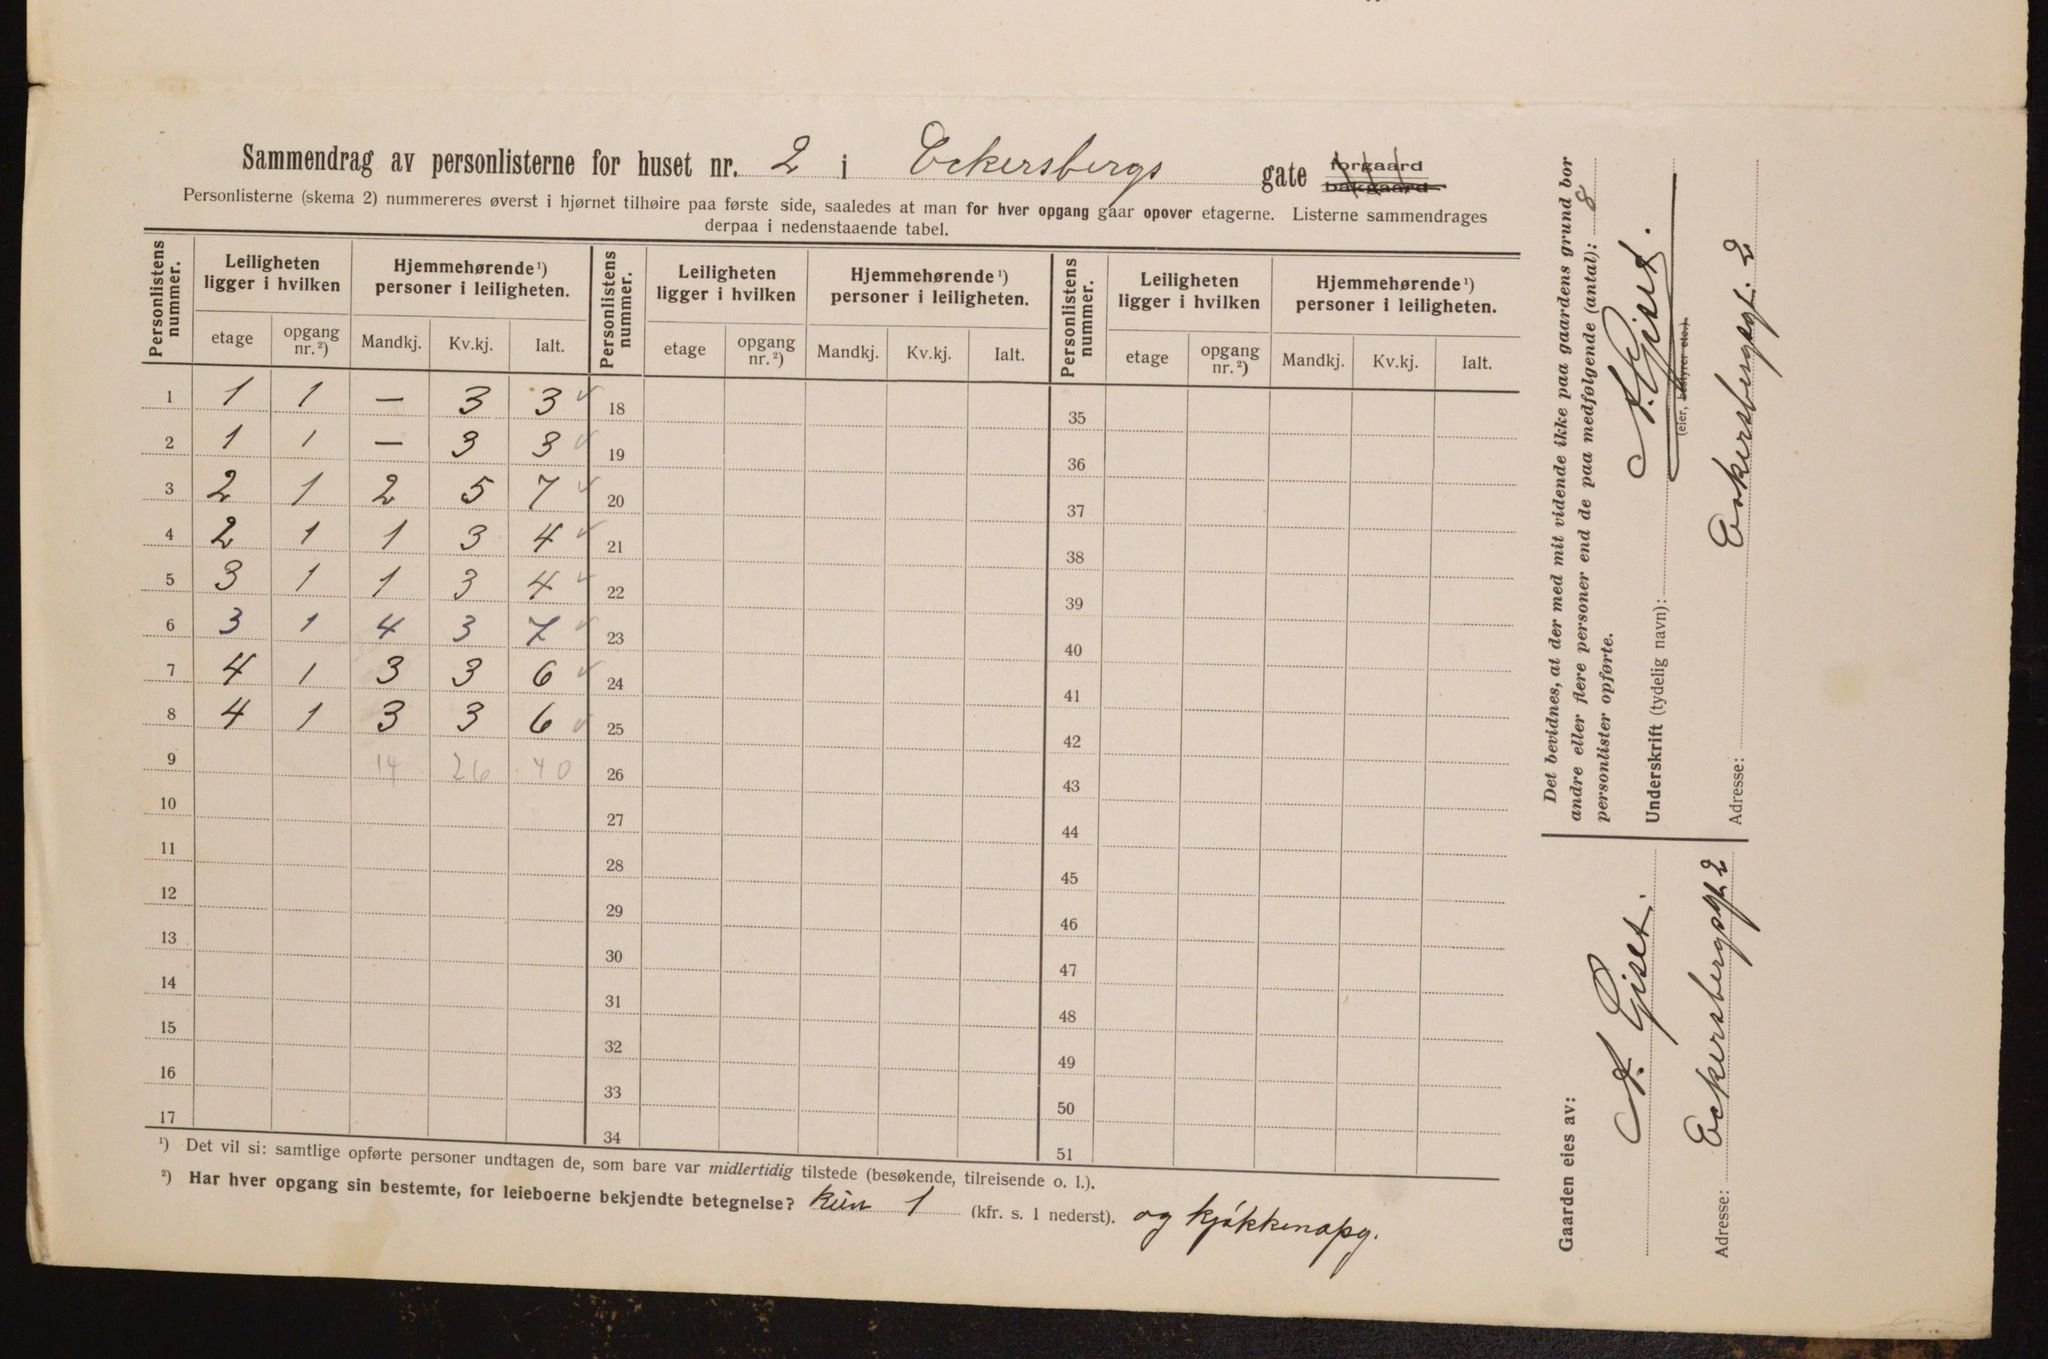 Sammendrag av personlisterne for huset nr. 2 i Eckersbergs gate forgaard bakgaard
Personlisterne (skema 2) nummereres øverst i hjørnet tilhøire paa første side, saaledes at man for hver opgang gaar opover etagerne. Listerne sammendrages
derpaa i nedenstaaende tabel.
Personlistens nummer. Leiligheten ligger i hvilken Hjemmehørende ¹) personer i leiligheten. Personlistens nummer. Leiligheten ligger i hvilken Hjemmehørende ¹) personer i leiligheten. Personlistens nummer. Leiligheten ligger i hvilken Hjemmehørende ¹) personer i leiligheten.
etage opgang nr. ²) Mandkj. Kv.kj. Ialt. etage opgang nr. ²) Mandkj. Kv.kj. Ialt. etage opgang nr. ²) Mandkj. Kv.kj. Ialt.
1 1 1 — 3 3 18 35
2 1 1 — 3 3 19 36
3 2 1 2 5 7 20 37
4 2 1 1 3 4 21 38
5 3 1 1 3 4 22 39
6 3 1 4 3 7 23 40
7 4 1 3 3 6 24 41
8 4 1 3 3 6 25 42
9 14 26 40 26 43
10 27 44
11 28 45
12 29 46
13 30 47
14 31 48
15 32 49
16 33 50
17 34 51
¹) Det vil si: samtlige opførte personer undtagen de, som bare var midlertidig tilstede (besøkende, tilreisende o. l.).
²) Har hver opgang sin bestemte, for leieboerne bekjendte betegnelse? kun 1 (kfr. s. 1 nederst). og kjøkkenopg.
Det bevidnes, at der med mit vidende ikke paa gaardens grund bor
andre eller flere personer end de paa medfølgende (antal): 8
personlister opførte.
Underskrift (tydelig navn): A. Gjset.
(eier, bestyrer etc.).
Adresse: Eckersbergsgt. 2
Gaarden eies av:
A. Gjset.
Adresse: Eckersbergsgt. 2